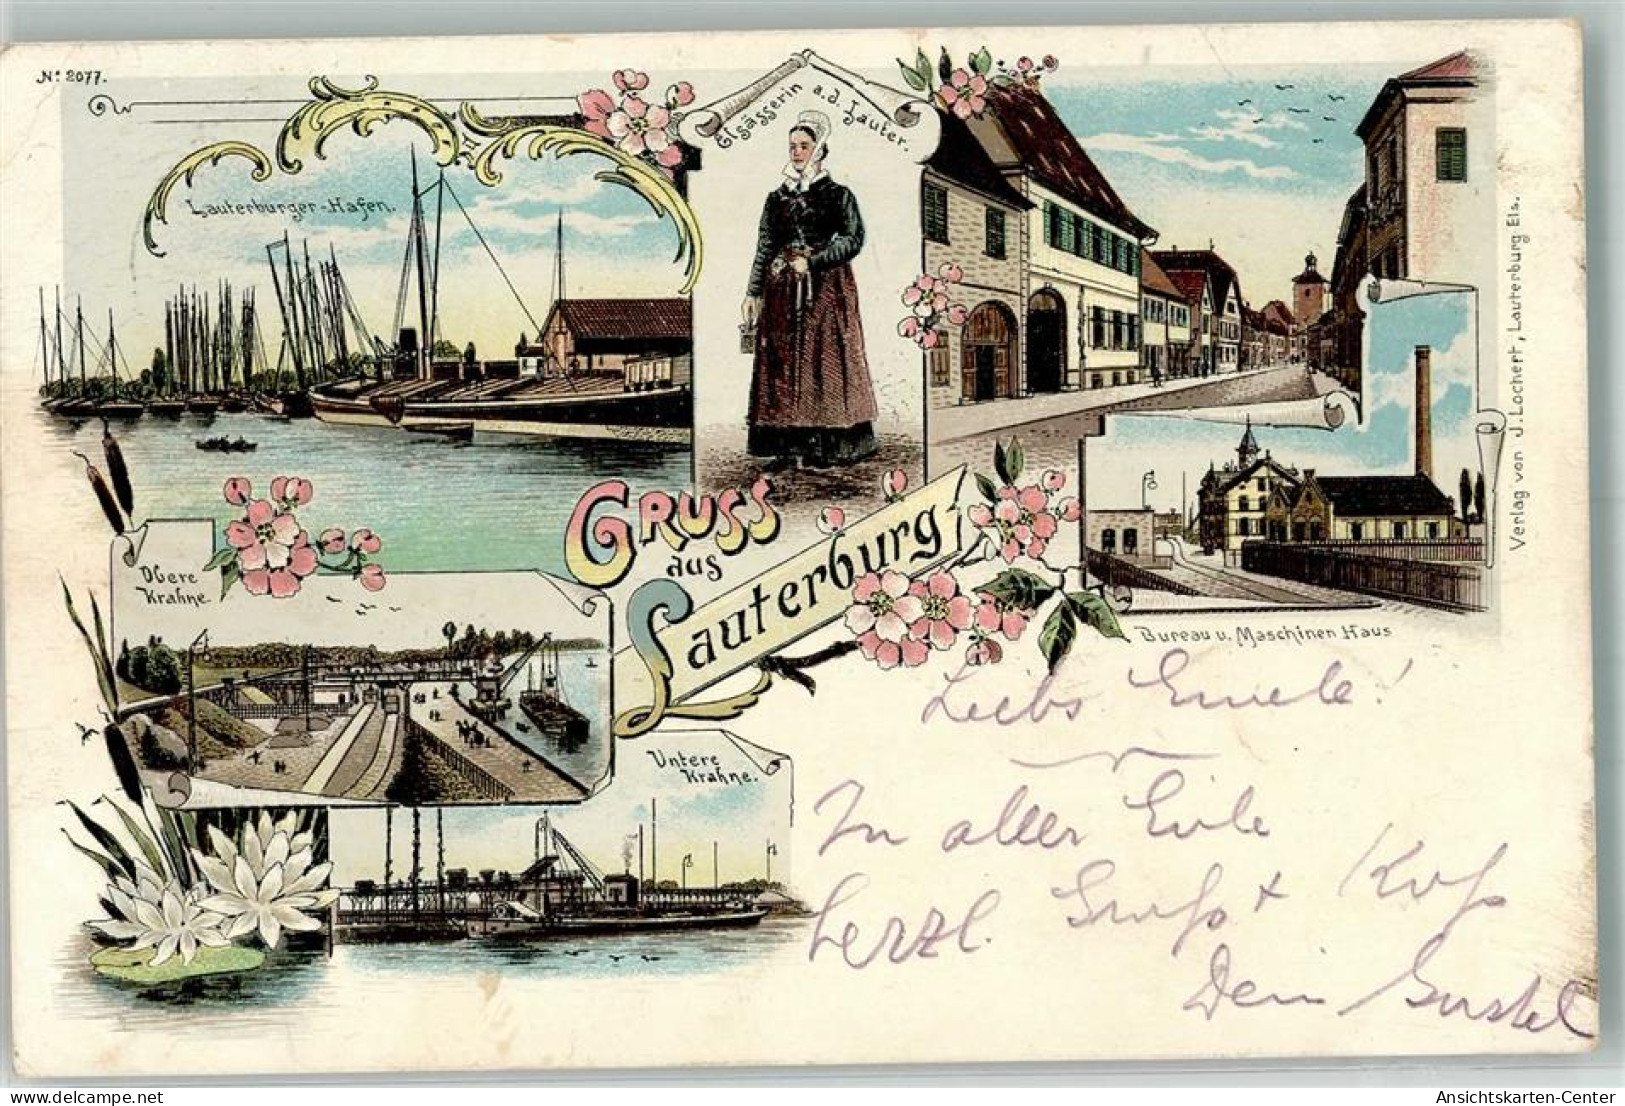 No. 2077.
Lauterburger-Hafen.
Elsässerin a.d. Lauter.
Gruss
aus
Lauterburg
Obere
Krahne
Bureau u. Maschinen Haus
Untere
Krahne.
Verlag von J. Lochert, Lauterburg Els.
Liebs
In aller Eile
herzl. Gruß + Kuß
Dein
Ansichtskarten-Center
delcampe.net